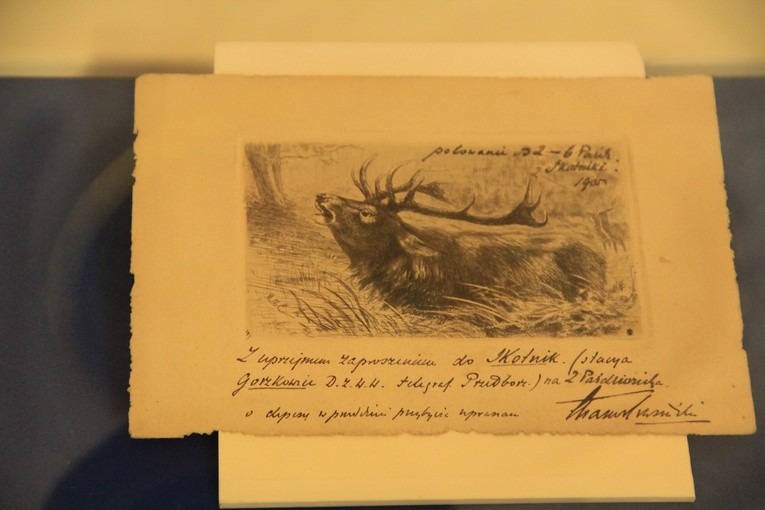 polowanie 2 – 6 Paźdz.
Skotniki
190
Z uprzejmem zaproszeniem do Skotnik. (stacya
Gorzkowice D. Ż. W. W. telegraf Przedborz.) na 2 Października.
o depeszę w przybycie upraszam